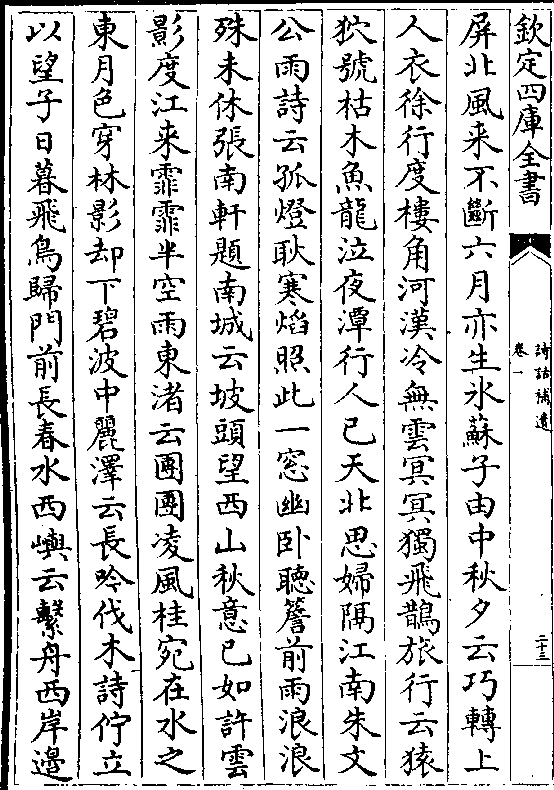 欽定四庫全書
詩話補遺
卷一
二十三
屏北風来不斷六月亦生氷蘇子由中秋夕云巧轉上
人衣徐行度樓角河漢冷無雲冥冥獨飛鵲旅行云猿
狖號枯木魚龍泣夜潭行人已天北思婦隔江南朱文
公雨詩云孤燈耿寒焰照此一窓幽卧聽簷前雨浪浪
殊未休張南軒題南城云坡頭望西山秋意已如許雲
影度江来霏霏半空雨東渚云團團凌風桂宛在水之
東月色穿林影却下碧波中麗澤云長吟伐木詩佇立
以望子日暮飛鳥歸門前長春水西嶼云繫舟西岸邉